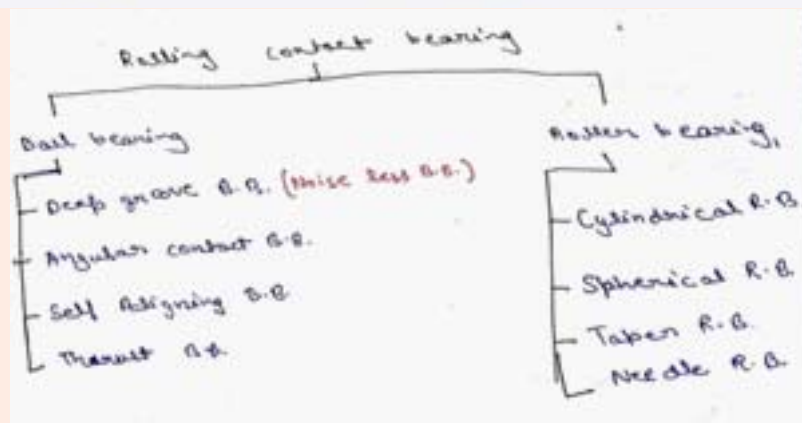 Rolling contact bearing
Ball bearing
Deep groove B.B. (Noise less B.B.)
Angular contact B.B.
Self Aligning B.B
Thrust B.B.
Roller bearing,
Cylindrical R.B
Spherical R.B.
Taper R.B.
Needle R.B.